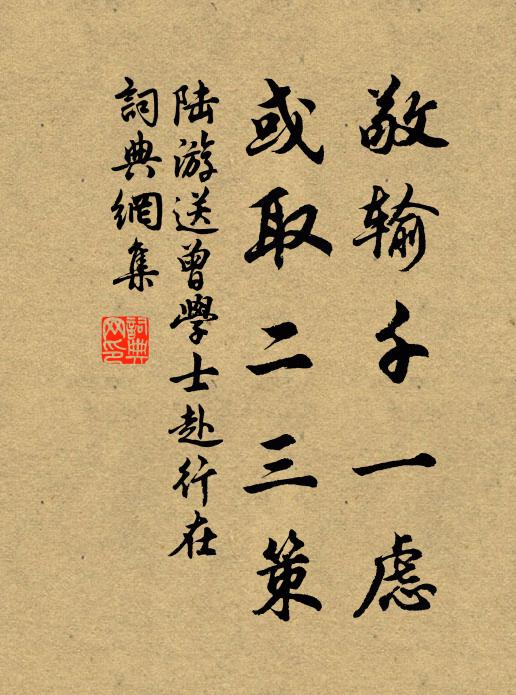 敬输千一慮
或取二三策
陆游送曾學士赴行在
詞典網集
詞典
网印